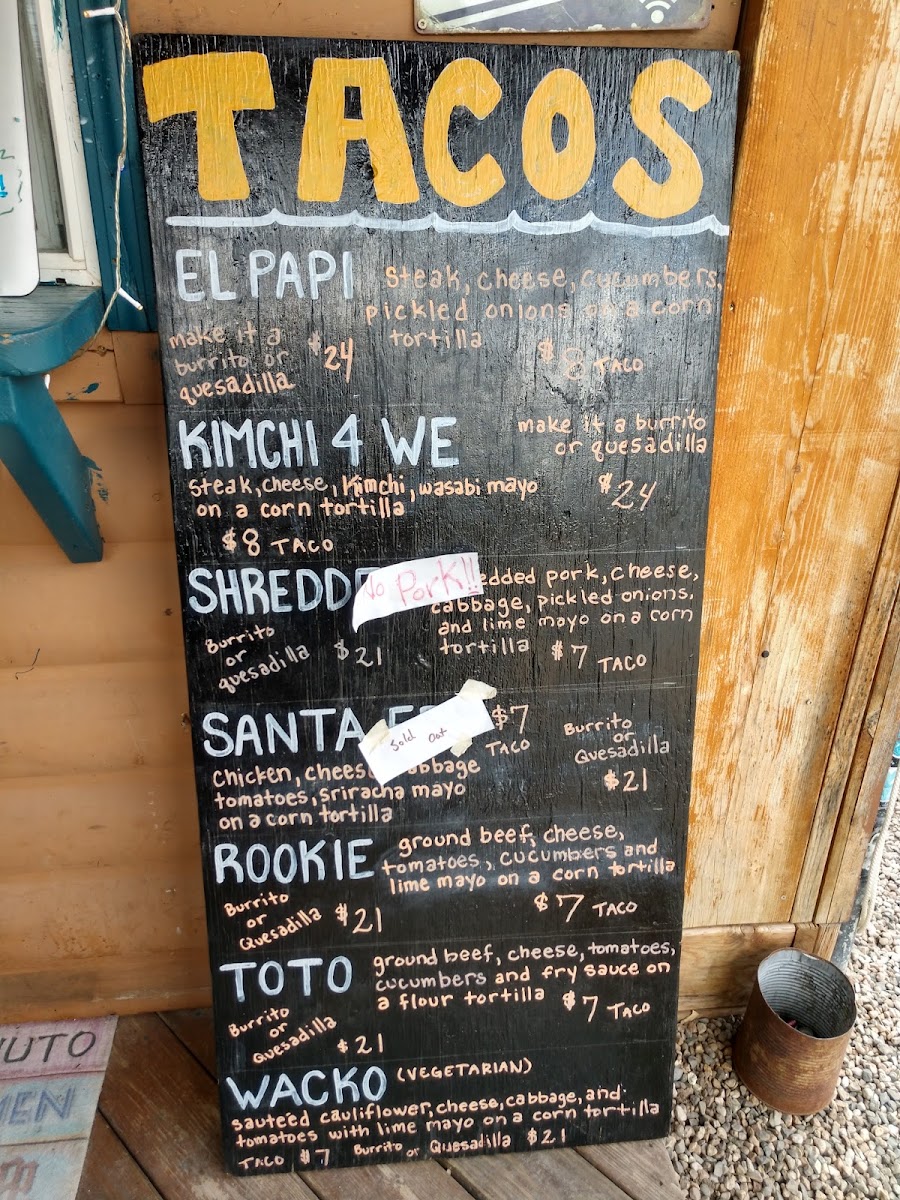 TACOS
EL PAPI
steak, cheese, cucumbers,
pickled onions on a corn
tortilla
make it a
burrito or
quesadilla
$24
$8 TACO
KIMCHI 4 WE
make it a burrito
or quesadilla
steak, cheese, Kimchi, wasabi mayo
on a corn tortilla
$24
$8 TACO
SHREDD
No Pork!!
edded pork, cheese,
cabbage, pickled onions,
and lime mayo on a corn
tortilla
Burrito
or
quesadilla
$21
$7 TACO
SANTA
Sold out
$7
TACO
Burrito
or
Quesadilla
$21
Chicken, cheese bbage
tomatoes, sriracha mayo
on a corn tortilla
ROOKIE
ground beef, cheese,
tomatoes, cucumbers and
lime mayo on a corn tortilla
Burrito
or
Quesadilla
$21
$7 TACO
TOTO
ground beef, cheese, tomatoes,
cucumbers and fry sauce on
a flour tortilla
$7 TACO
Burrito
or
Quesadilla
$21
WACKO (VEGETARIAN)
sauteed cauliflower, cheese, cabbage, and
tomatoes with lime mayo on a corn tortilla
TACO $7 Burrito or Quesadilla $21
UTO
MEN